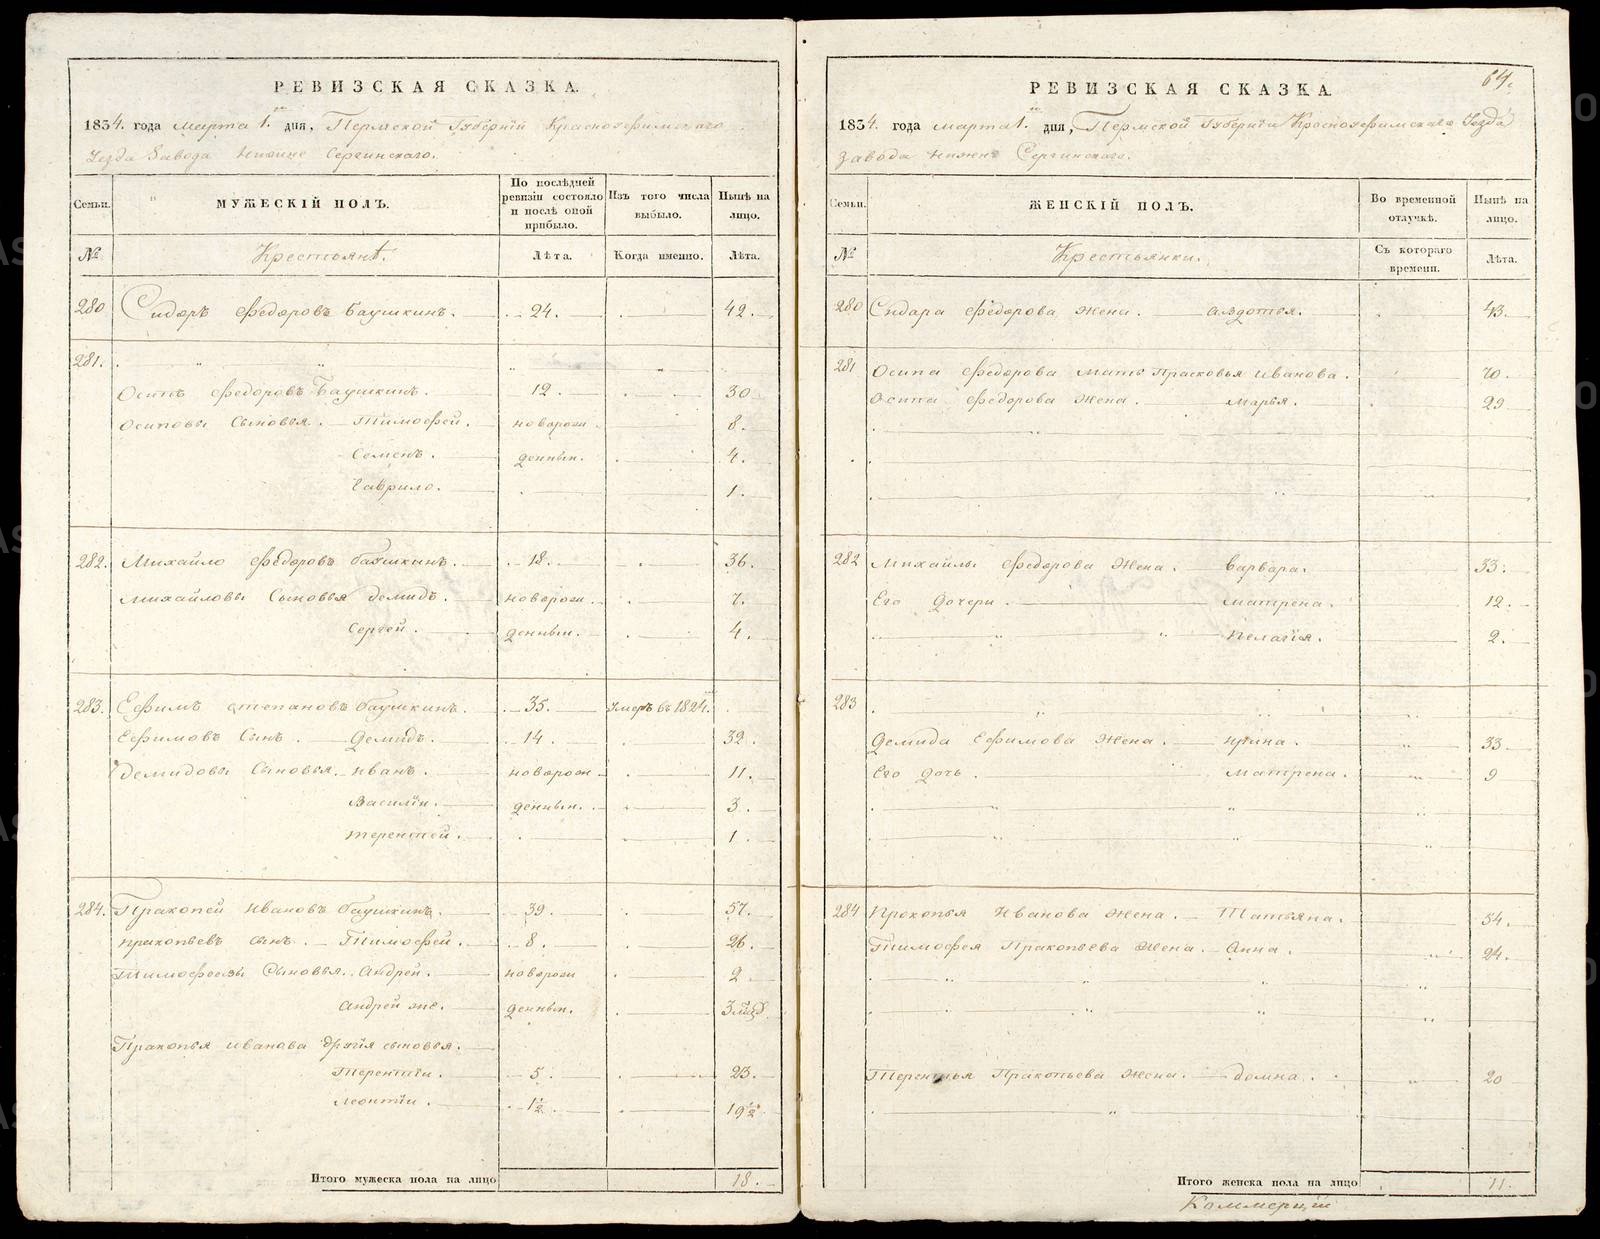 РЕВИЗСКАЯ СКАЗКА.
1834. года марта 1. дня, Пермской Губернiи Красноуфимскаго
Уезда Завода Нижне Сергинскаго.
Семьи.
МУЖЕСКIЙ ПОЛЪ.
По послѣдней ревизiи состояло и послѣ оной прибыло.
Изъ того числа выбыло.
Нынѣ на лицо.
№
Крестьянъ.
Лѣта.
Когда именно.
Лѣта.
280 Сидоръ Федоровъ Баушкинъ. 24. 42.
281.
Осипъ Федоровъ Баушкинъ. 12. 30
Осиповы Сыновья. Тимофей. новорож 8.
Семенъ. денныи. 4.
Гаврило. 1.
282. Михайло Федоровъ Баушкинъ. 18. 36.
Михайловы Сыновья Демидъ. новорож 7.
Сергей. денныи. 4.
283. Ефимъ Степановъ Баушкинъ. 35. Умеръ въ 1824.
Ефимовъ Сынъ. Демидъ. 14. 32.
Демидовы Сыновья. Иванъ. новорож 11.
Василiи. денныи. 3.
Терентей. 1
284. Пракопей Ивановъ Баушкинъ. 39. 57.
Пракопьевъ Сынъ. Тимофей. 8. 26.
Тимофеевы Сыновья. Андрей. новорож 2
Андрей же. денныи. 3
Пракопья Иванова другiя сыновья.
Терентiи. 5. 23.
Леонтiи. 1½ 19½
Итого мужеска пола на лицо 18.
64.
РЕВИЗСКАЯ СКАЗКА.
1834. года марта 1. дня, Пермской Губернiи Красноуфимскаго Уезда
Завода Нижне Сергинскаго.
Семьи.
ЖЕНСКIЙ ПОЛЪ.
Во временной отлучкѣ.
Нынѣ на лицо.
№
Крестьянки.
Съ котораго времени.
Лѣта.
280 Сидара Федорова жена. Авдотья. 43.
281 Осипа Федорова мать Прасковья Иванова. 70.
Осипа Федорова жена. Марья. 29
282 Михайлы Федорова жена. Варвара. 33.
Его дочери. Матрена. 12.
Пелагiя. 2.
283
Демида Ефимова жена. Ирина. 33
Его дочь. Матрена. 9
284 Прокопья Иванова жена. Татьяна. 54.
Тимофея Пракопьева жена. Анна. 24.
Терентья Пракопьева жена. Домна. 20
Итого женска пола на лицо 11.
Коммерцiи